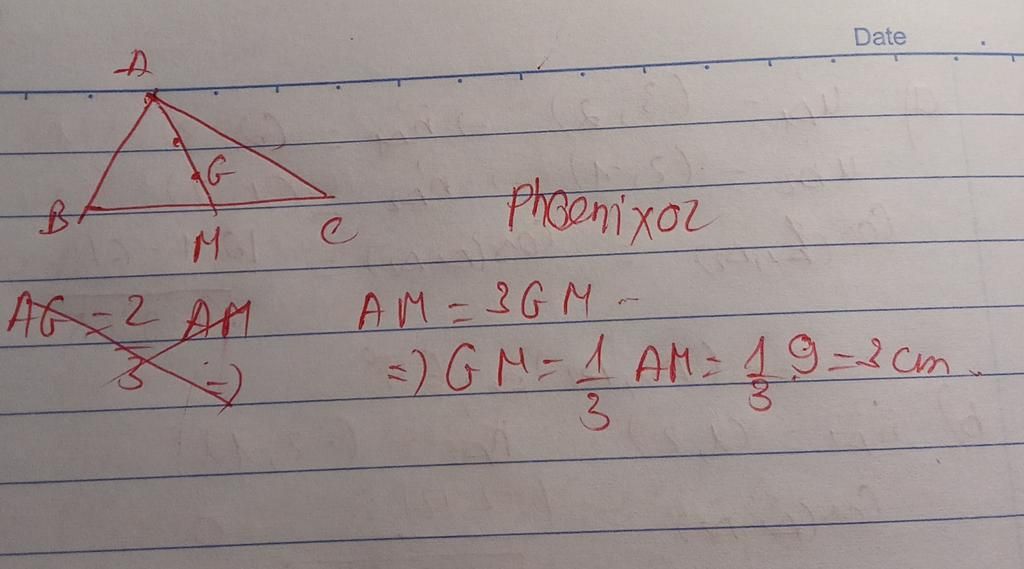 Date
A
G
B
M
C
Phoenixoz
AM = 3GM
=) GM = 1/3 AM = 1/3 . 9 = 3 cm.